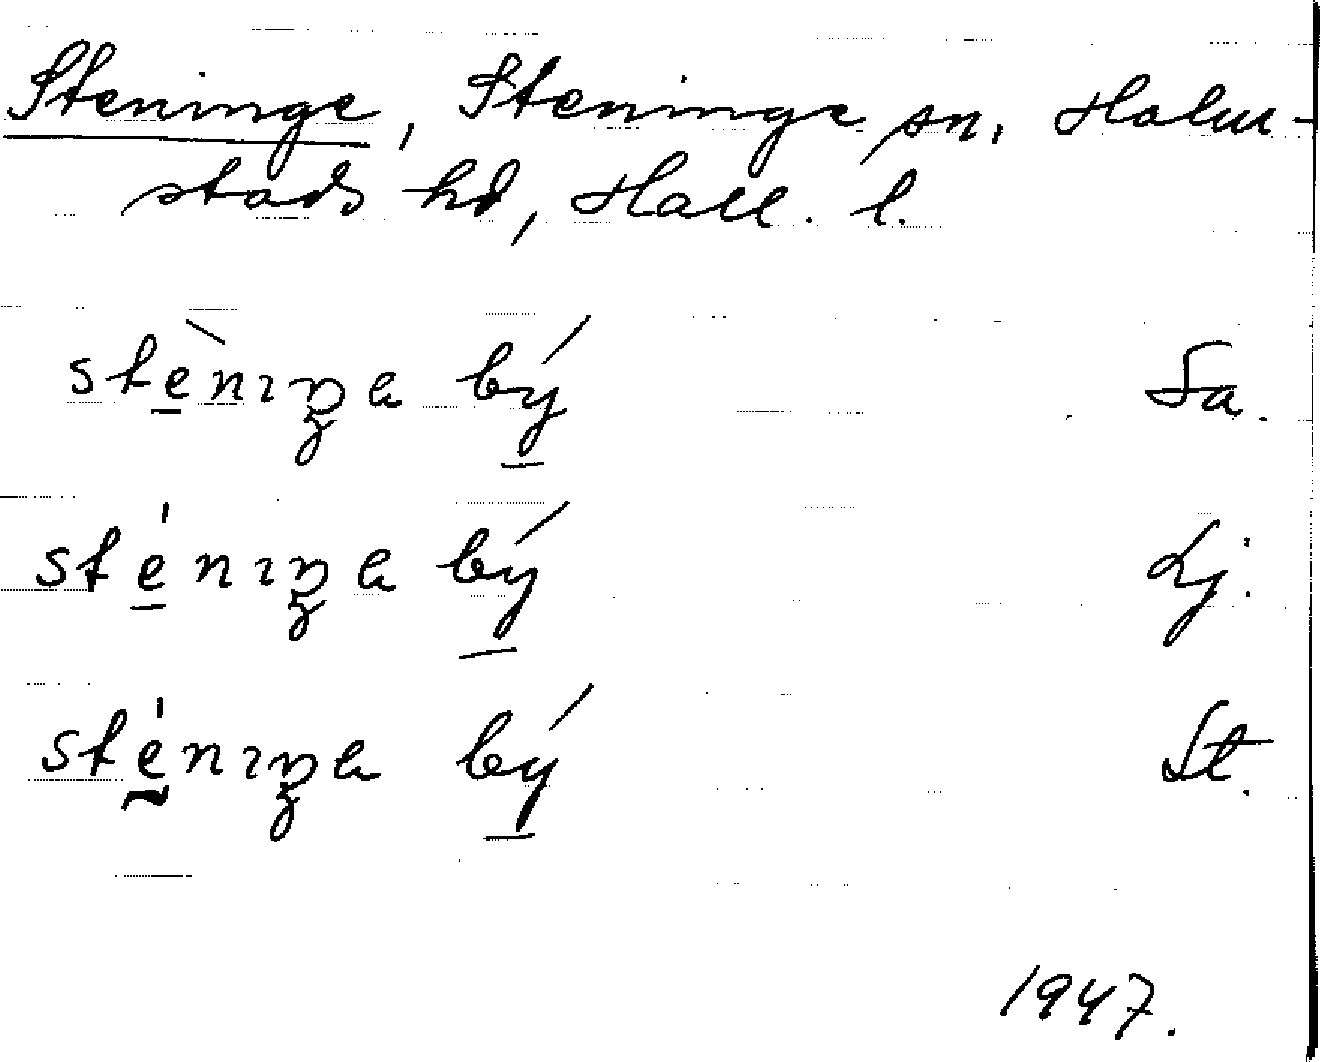 Steninge, Steninge sn. Halm-
stads hd, Hall. l.
stènıŋa bý Sa.
sténıŋa bý Lj.
sténıŋa bý St.
1947.